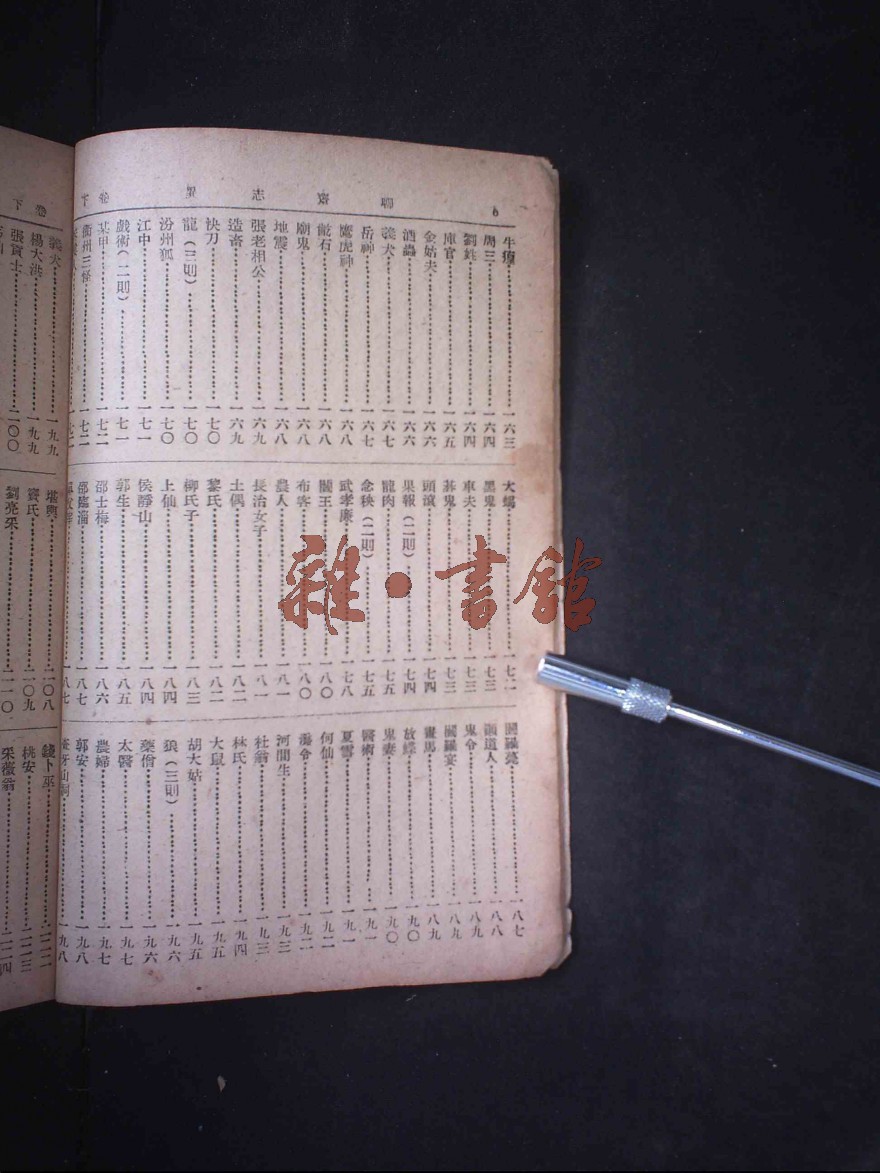 6　聊齋志異　卷下
牛癀……一六三
周三……一六四
劉姓……一六四
庫官……一六五
金姑夫……一六六
酒蟲……一六六
義犬……一六七
岳神……一六七
鷹虎神……一六八
齕石……一六八
廟鬼……一六八
地震……一六八
張老相公……一六九
造畜……一六九
快刀……一七〇
龍(三則)……一七〇
汾州狐……一七〇
江中……一七一
戲術(二則)……一七一
某甲……一七二
衢州三怪……一七二
大蝎……一七二
黑鬼……一七三
車夫……一七三
棊鬼……一七三
頭滾……一七四
果報(二則)……一七四
龍肉……一七五
念秧(二則)……一七五
武孝廉……一七八
閻王……一八〇
布客……一八〇
農人……一八一
長治女子……一八一
土偶……一八二
黎氏……一八二
柳氏子……一八三
上仙……一八四
侯靜山……一八四
郭生……一八五
邵士梅……一八六
邵臨淄……一八七
一八七
閻羅薨……一八七
顛道人……一八八
鬼令……一八九
閻羅宴……一八九
畫馬……一八九
放蝶……一九〇
鬼妻……一九〇
醫術……一九一
夏雪……一九一
何仙……一九二
潞令……一九二
河間生……一九三
杜翁……一九三
林氏……一九四
大鼠……一九五
胡大姑……一九五
狼(三則)……一九六
藥僧……一九六
太醫……一九七
農婦……一九七
郭安……一九八
牙山洞……一九八
卷下
義犬……一九九
楊大洪……一九九
張貢士……二〇〇
堪輿……二〇八
竇氏……二〇九
劉亮采……二一〇
錢卜巫……二二二
姚安……二二三
采薇翁……二二四
雜·書館